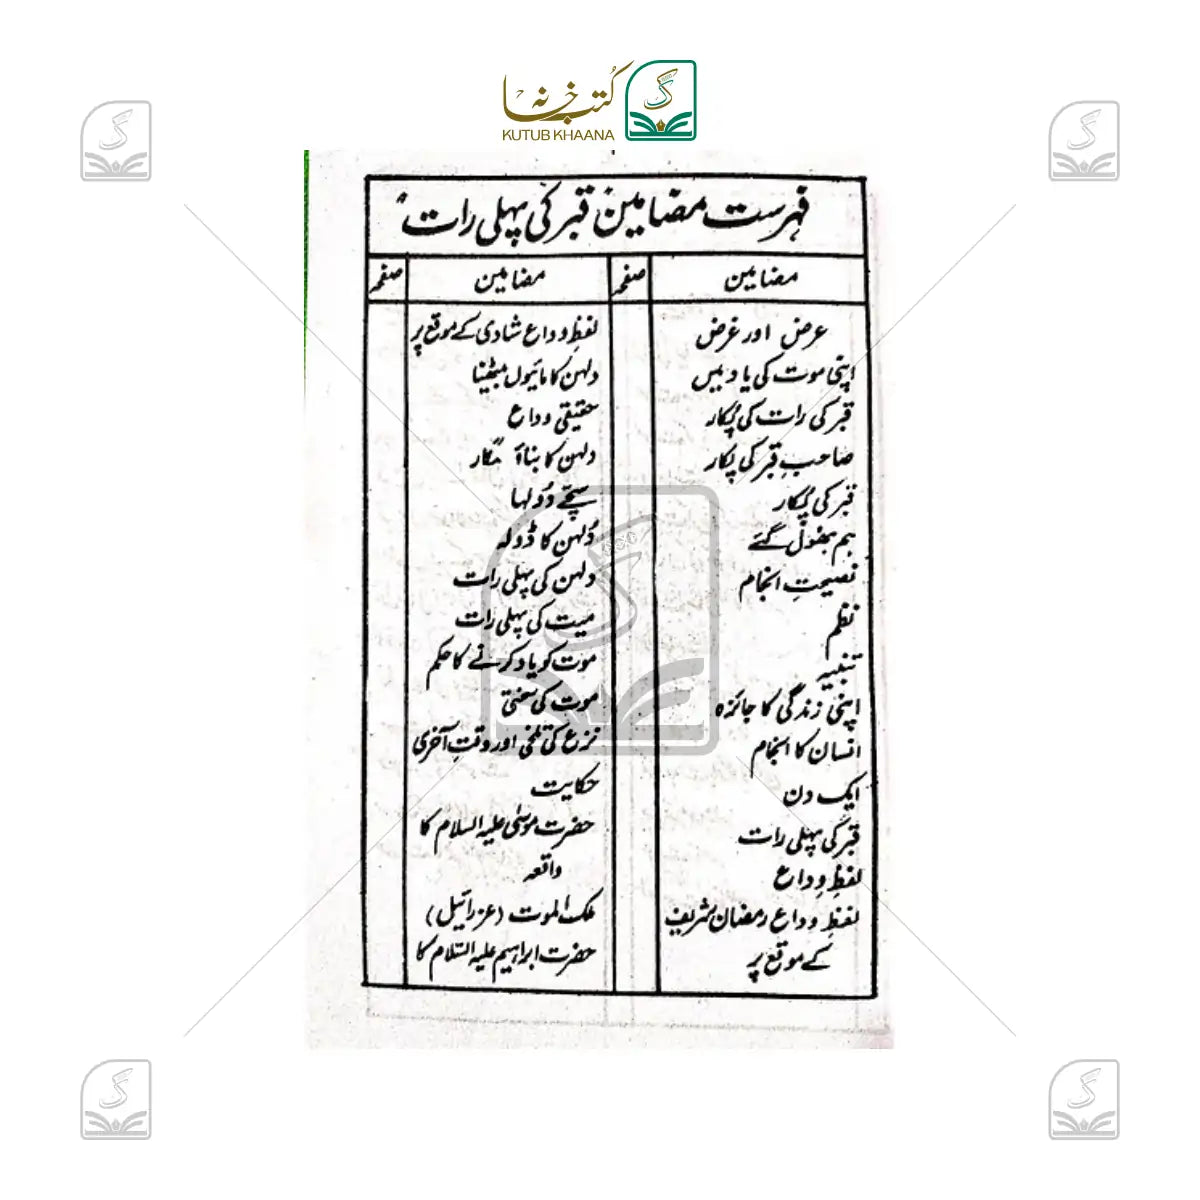 کتب خانہ
KUTUB KHAANA
فہرست مضامین قبر کی پہلی رات
مضامین
صفحہ
مضامین
صفحہ
عرض اور غرض
اپنی موت کی یاد میں
قبر کی رات کی پُکار
صاحبِ قبر کی پکار
قبر کی پُکار
ہم بھول گئے
نصیحتِ انجام
نظم
تنبیہ
اپنی زندگی کا جائزہ
انسان کا انجام
ایک دن
قبر کی پہلی رات
لفظِ وداع
لفظِ وداع رمضان شریف
کے موقع پر
لفظِ وداع شادی کے موقع پر
دلہن کا مائیوں بیٹھنا
حقیقی وداع
دلہن کا بناؤ
سچّے دُولہا
دُلہن کا ڈولہ
دلہن کی پہلی رات
میت کی پہلی رات
موت کو یاد کرنے کا حکم
موت کی سختی
نزع کی تلخی اور وقتِ آخری
حکایت
حضرت موسٰی علیہ السلام کا
واقعہ
ملک الموت (عزرائیل)
حضرت ابراہیم علیہ السّلام کا